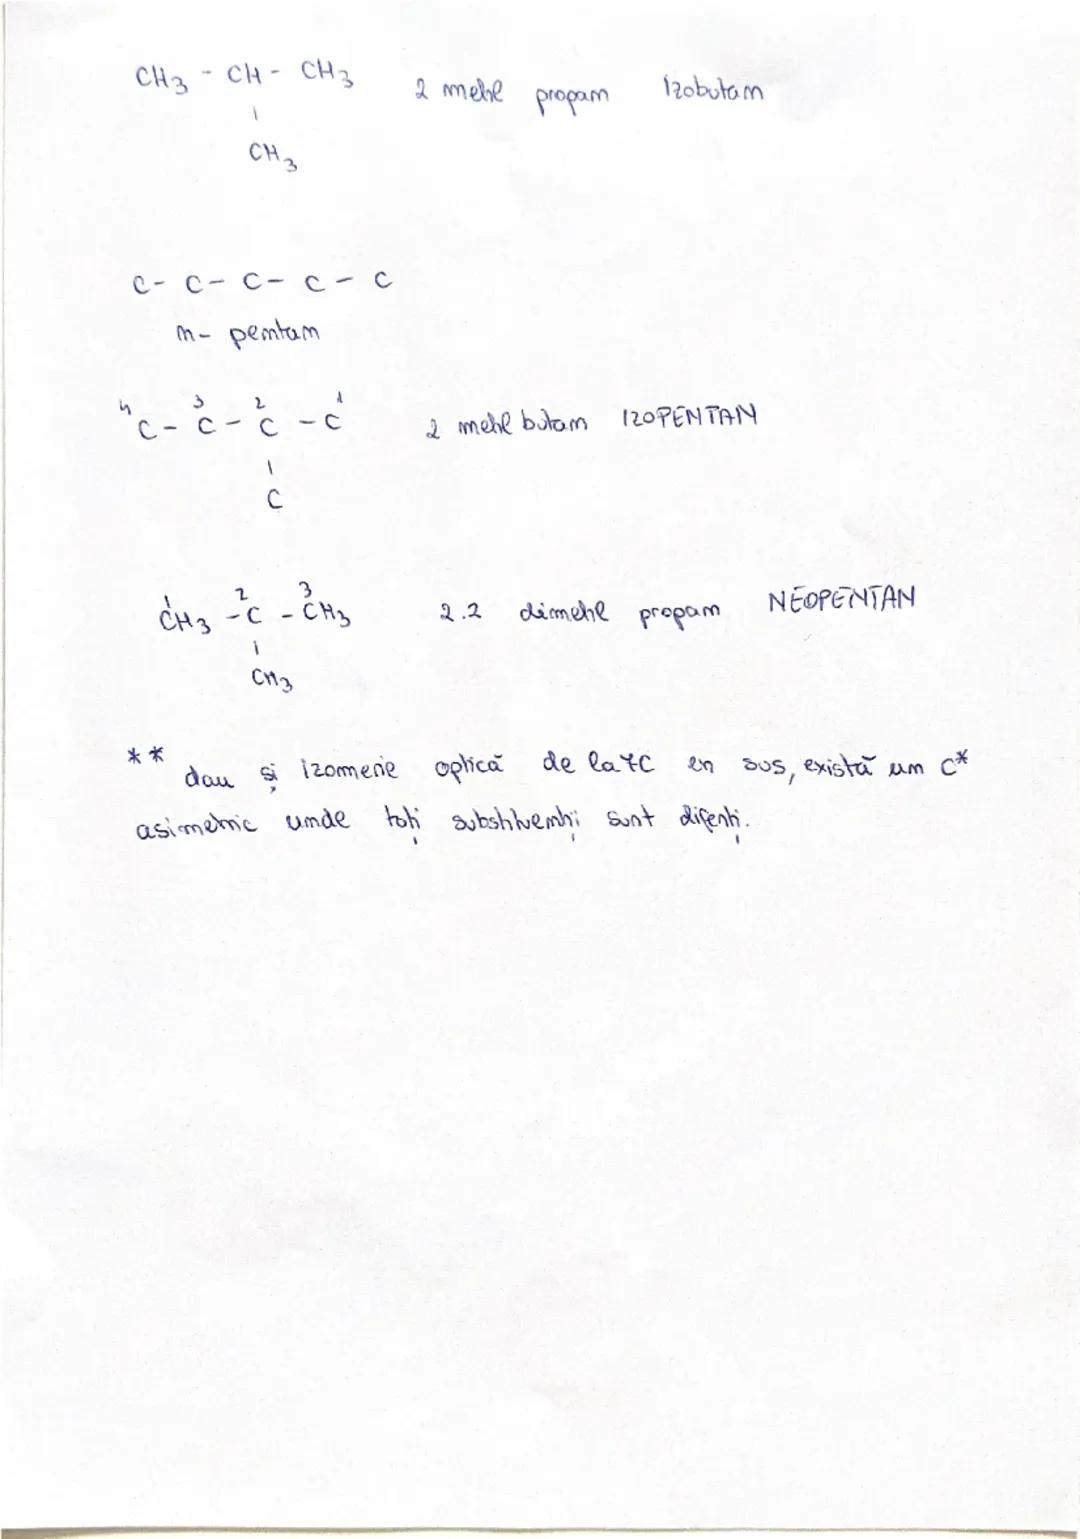 CH3 - CH - CH3 2 metil propan Izobutan
CH3
C - C - C - C - C
n - pentan
4 3 2 1
C - C - C - C 2 metil butan IZOPENTAN
C
1 2 3
CH3 - C - CH3 2.2 dimetil propan NEOPENTAN
CH3
** dau și izomerie optică de la 7C en sus, există un C*
asimetric unde toți substituenții sunt diferiți.